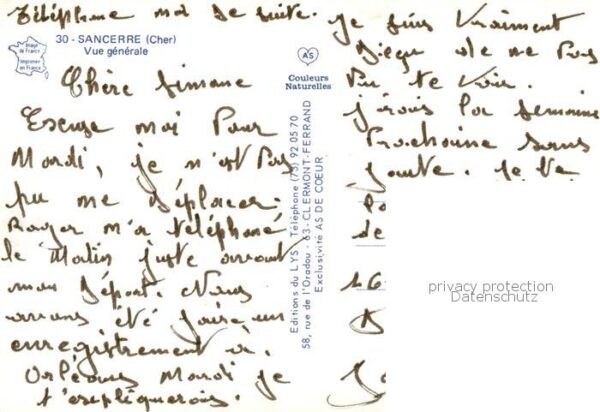 Téléphone moi de suite.
Image de France
Imprimé en France
30 - SANCERRE (Cher)
Vue générale
AS
Couleurs
Naturelles
Chère Simone
Escuse moi Pour
Mardi, je n'est Pas
pu me déplacer.
Roger m'a téléphoné
le Matin juste avant
mon Départ. Nous
avons été faire un
enregistrement à
Orléans Mardi je
t'espliquerais.
Editions du LYS - Téléphone (73) 92.05.70
58, rue de l'Oradou - 63 - CLERMONT-FERRAND
Exclusivité AS DE COEUR
je suis Vraiment
de ne Pas
Pu te Voir.
j'irais la semaine
Prochaine sans
doute. Je te
de
privacy protection
Datenschutz